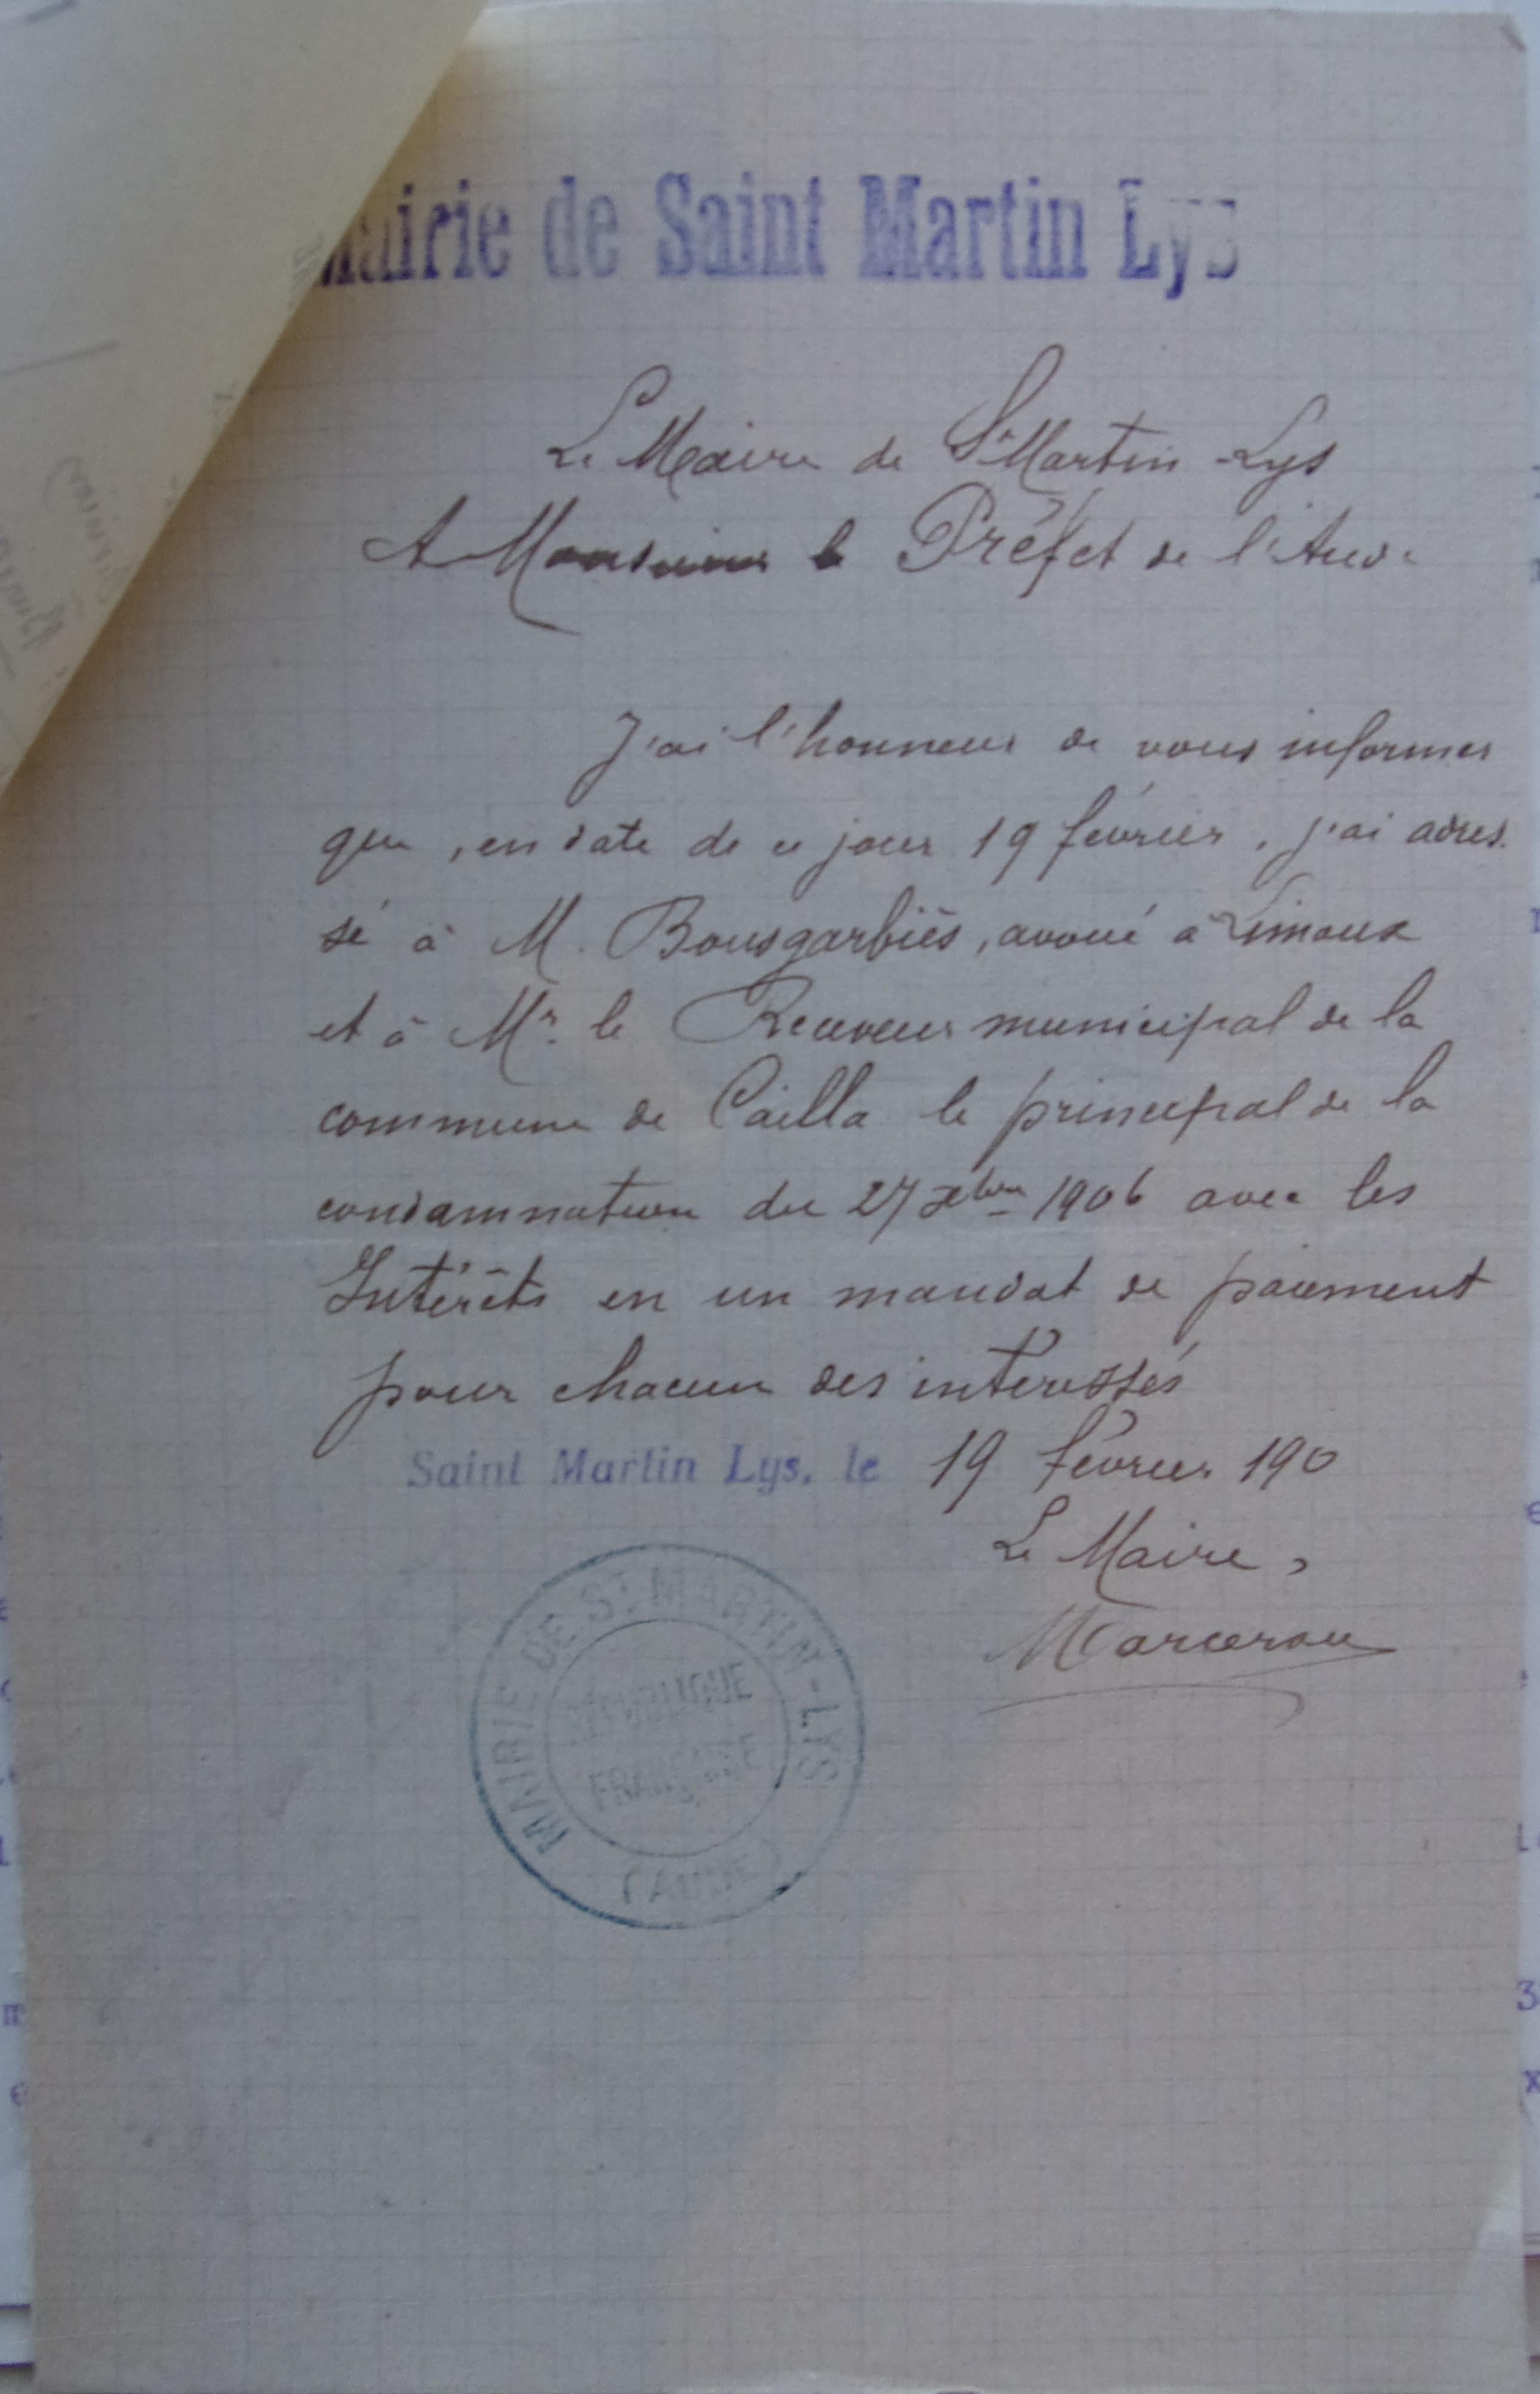 Mairie de Saint Martin Lys
Le Maire de St Martin-Lys
A Monsieur le Préfet de l'Aude
J'ai l'honneur de vous informer
que, en date de ce jour 19 février, j'ai adres
sé à M. Bousgarbiès, avoué à Limoux
et à Mr. le Receveur municipal de la
commune de Cailla le principal de la
condamnation du 27 Xbre 1906 avec les
Intérêts en un mandat de paiement
pour chacun des intéressés
Saint Martin Lys, le 19 février 190
Le Maire,
Marcerou
MAIRIE DE ST MARTIN-LYS
RÉPUBLIQUE
FRANÇAISE
(AUDE)